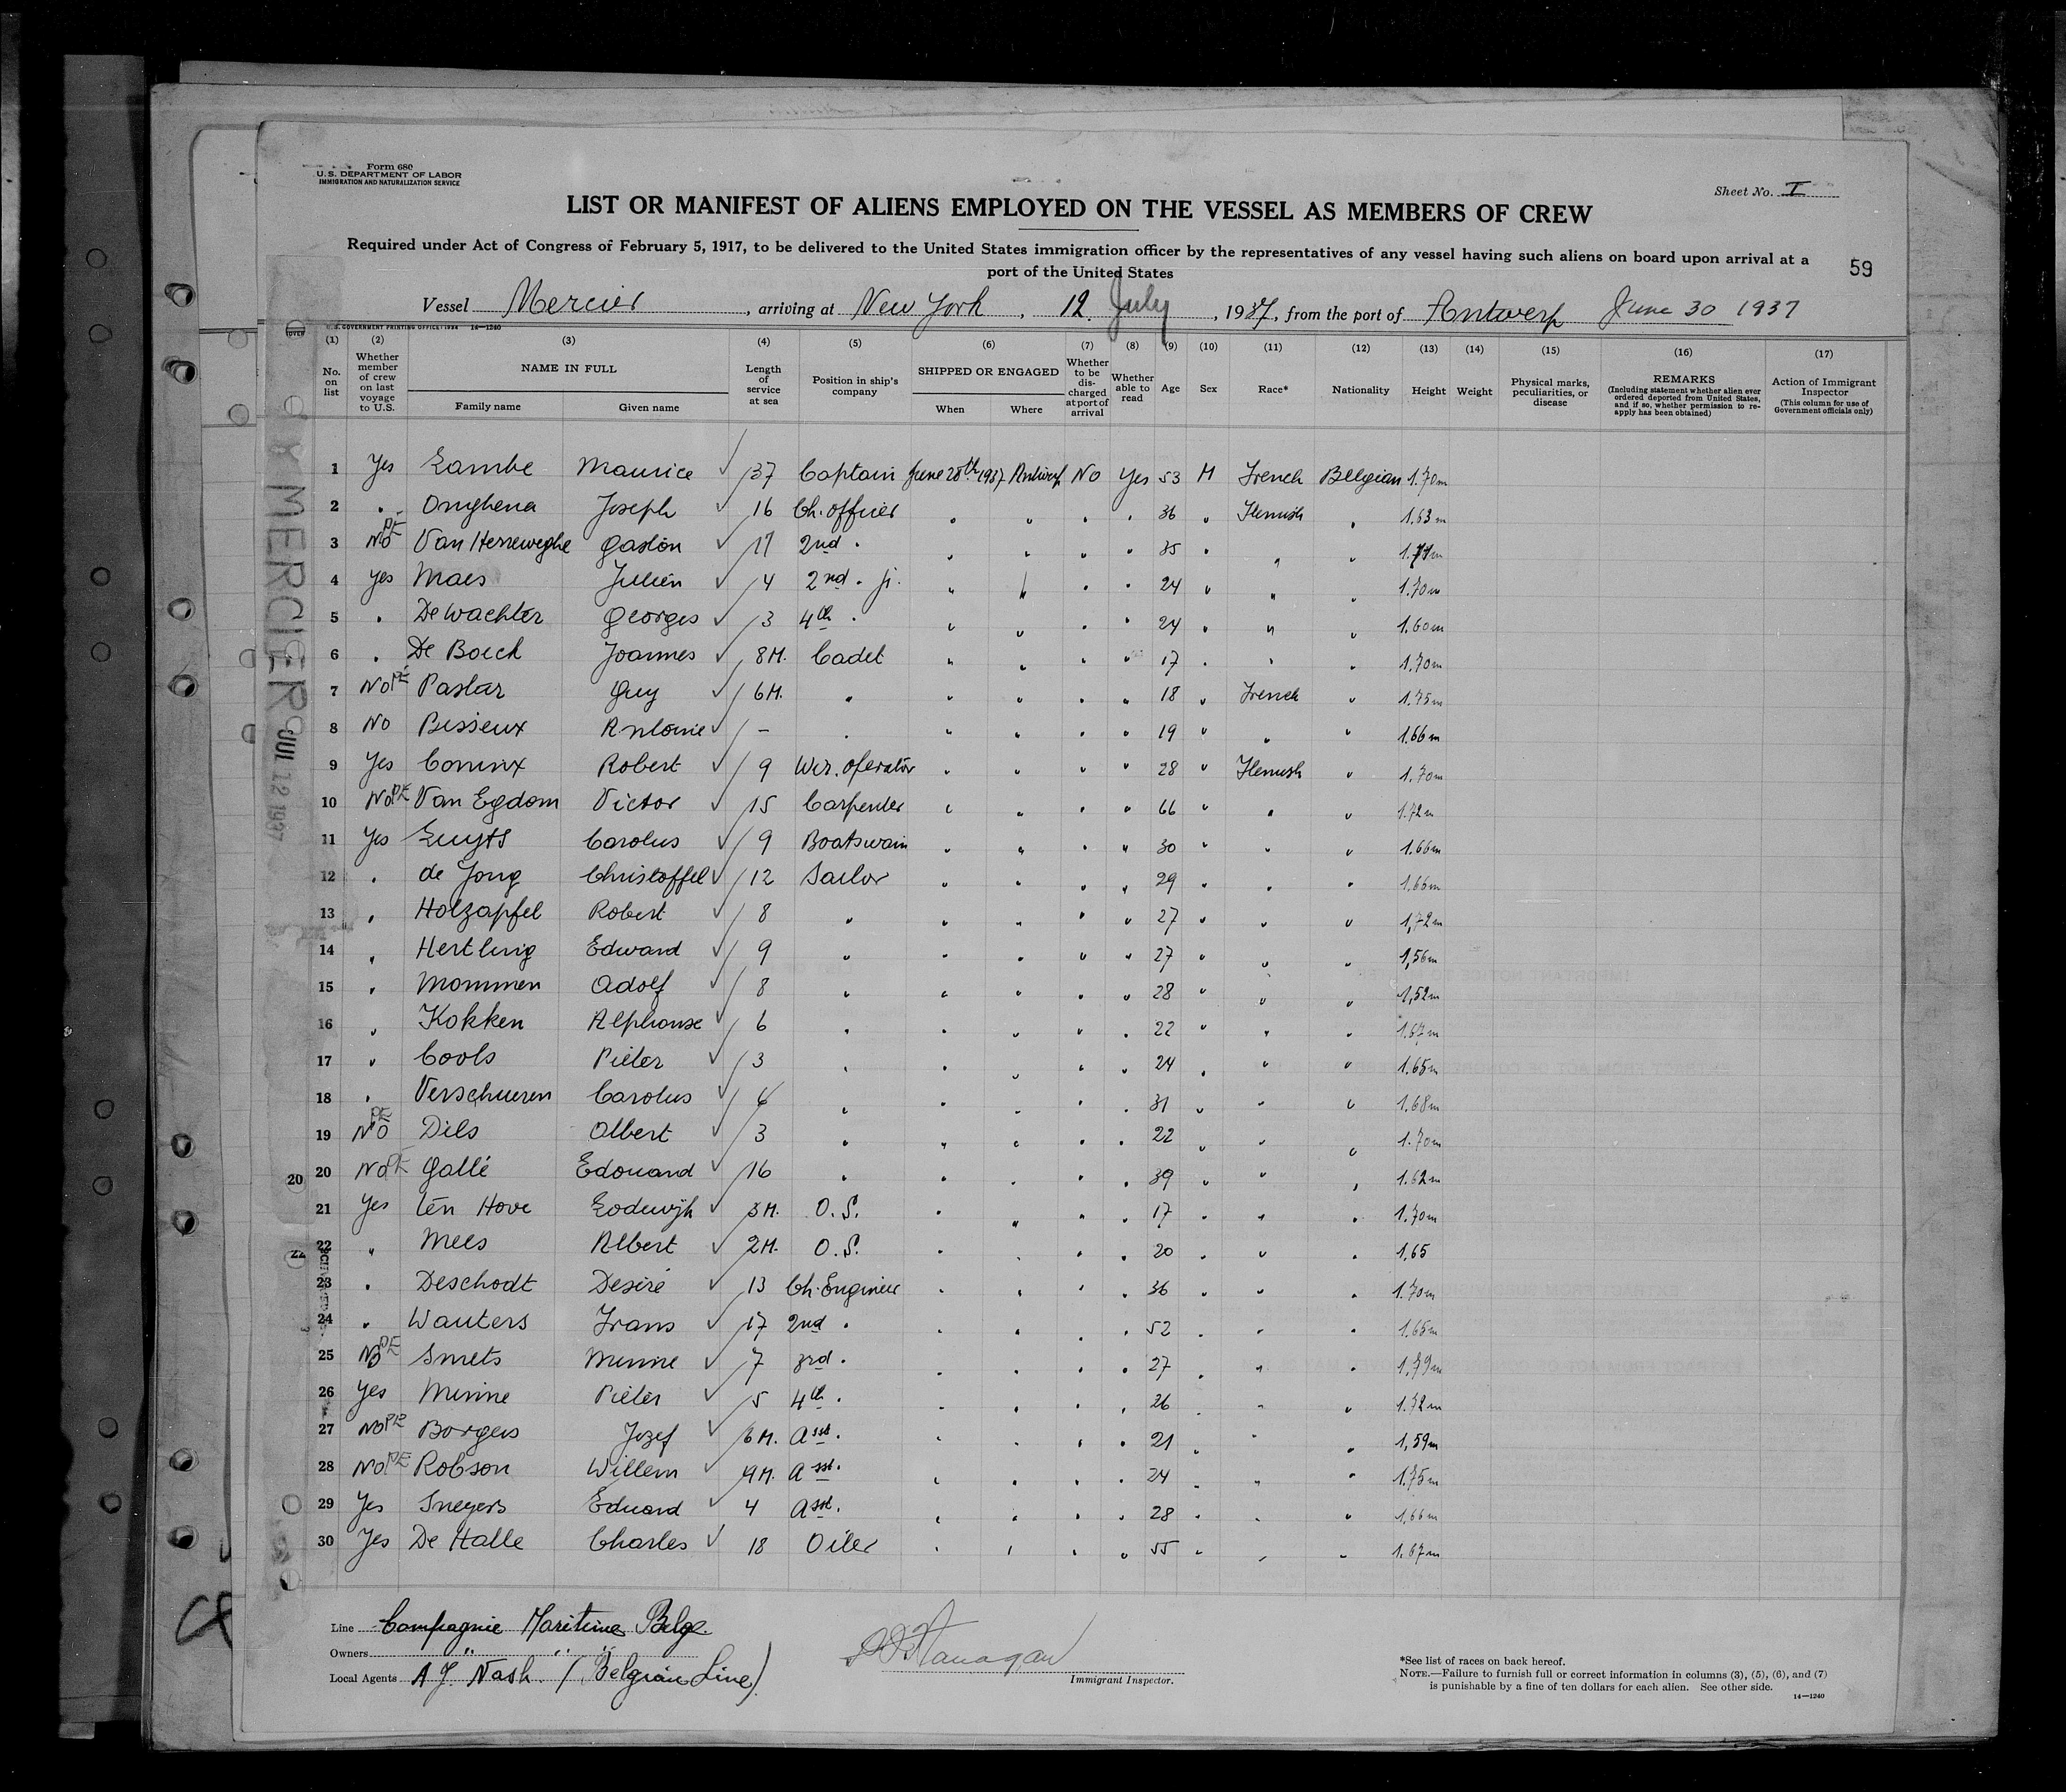 Form 680
U.S. DEPARTMENT OF LABOR
IMMIGRATION AND NATURALIZATION SERVICE
Sheet No. I
LIST OR MANIFEST OF ALIENS EMPLOYED ON THE VESSEL AS MEMBERS OF CREW
Required under Act of Congress of February 5, 1917, to be delivered to the United States immigration officer by the representatives of any vessel having such aliens on board upon arrival at a
port of the United States
59
Vessel Mercier, arriving at New York, 12 July, 1937, from the port of Antwerp June 30 1937
U.S. GOVERNMENT PRINTING OFFICE: 1936 14—1240
(1) (2) (3) (4) (5) (6) (7) (8) (9) (10) (11) (12) (13) (14) (15) (16) (17)
No. on list
Whether member of crew on last voyage to U.S.
NAME IN FULL
Family name Given name
Length of service at sea
Position in ship's company
SHIPPED OR ENGAGED
When Where
Whether to be discharged at port of arrival
Whether able to read
Age Sex Race* Nationality Height Weight
Physical marks, peculiarities, or disease
REMARKS
(Including statement whether alien ever ordered deported from United States, and if so, whether permission to re-apply has been obtained)
Action of Immigrant Inspector
(This column for use of Government officials only)
MERCIER
JUL 12 1937
1 Yes Lambe Maurice 37 Captain June 28th 1937 Antwerp No Yes 53 M French Belgian 1.70m
2 " Onghena Joseph 16 Ch. officer " " " " 36 " Flemish " 1.63m
3 No PE Van Herreweghe Gaston 17 2nd " " " " " 35 " " " 1.71m
4 Yes Maes Julien 4 2nd " jr. " " " " 24 " " " 1.70m
5 " De Wachter Georges 3 4th " " " " " 24 " " " 1.60m
6 " De Boeck Joannes 8M. Cadet " " " " 17 " " " 1.70m
7 No PE Pastar Guy 6M. " " " " " 18 " French " 1.75m
8 No Bissieux Antoine - " " " " " 19 " " " 1.66m
9 Yes Coninx Robert 9 Wir. operator " " " " 28 " Flemish " 1.70m
10 No PE Van Egdom Victor 15 Carpenter " " " " 66 " " " 1.72m
11 Yes Luyts Carolus 9 Boatswain " " " " 30 " " " 1.66m
12 " de Jong Christoffel 12 Sailor " " " " 29 " " " 1.66m
13 " Holzapfel Robert 8 " " " " " 27 " " " 1,72m
14 " Hertling Edward 9 " " " " " 27 " " " 1,56m
15 " Mommen Adolf 8 " " " " " 28 " " " 1,52m
16 " Kokken Alphonse 6 " " " " " 22 " " " 1.67m
17 " Cools Pieter 3 " " " " " 24 " " " 1.65m
18 " Verschueren Carolus " " " " " 31 " " " 1.68m
19 No PE Dils Albert 3 " " " " " 22 " " " 1.70m
20 No PE Gallé Edouard 16 " " " " " 39 " " " 1.62m
21 Yes ten Hove Lodewijk 3M. O.S. " " " " 17 " " " 1.70m
22 " Mees Albert 2M. O.S. " " " " 20 " " " 1,65
23 " Deschodt Desiré 13 Ch. Engineer " " " " 36 " " " 1.70m
24 " Wauters Frans 17 2nd " " " " " 52 " " " 1.65m
25 No PE Smets Minne 7 3rd " " " " " 27 " " " 1.79m
26 Yes Minne Pieter 5 4th " " " " " 26 " " " 1.72m
27 No PE Borgers Jozef 6M. Asst. " " " " 21 " " " 1,59m
28 No PE Robson Willem 9M. Asst. " " " " 24 " " " 1.75m
29 Yes Sneyers Eduard 4 Asst. " " " " 28 " " " 1,66m
30 Yes De Halle Charles 18 Oiler " " " " 55 " " " 1.67m
20
22
Line Compagnie Maritime Belge.
Owners " " "
Local Agents A.J. Nash. (Belgian Line)
Flanagan
Immigrant Inspector.
*See list of races on back hereof.
NOTE.—Failure to furnish full or correct information in columns (3), (5), (6), and (7)
is punishable by a fine of ten dollars for each alien. See other side.
14—1240